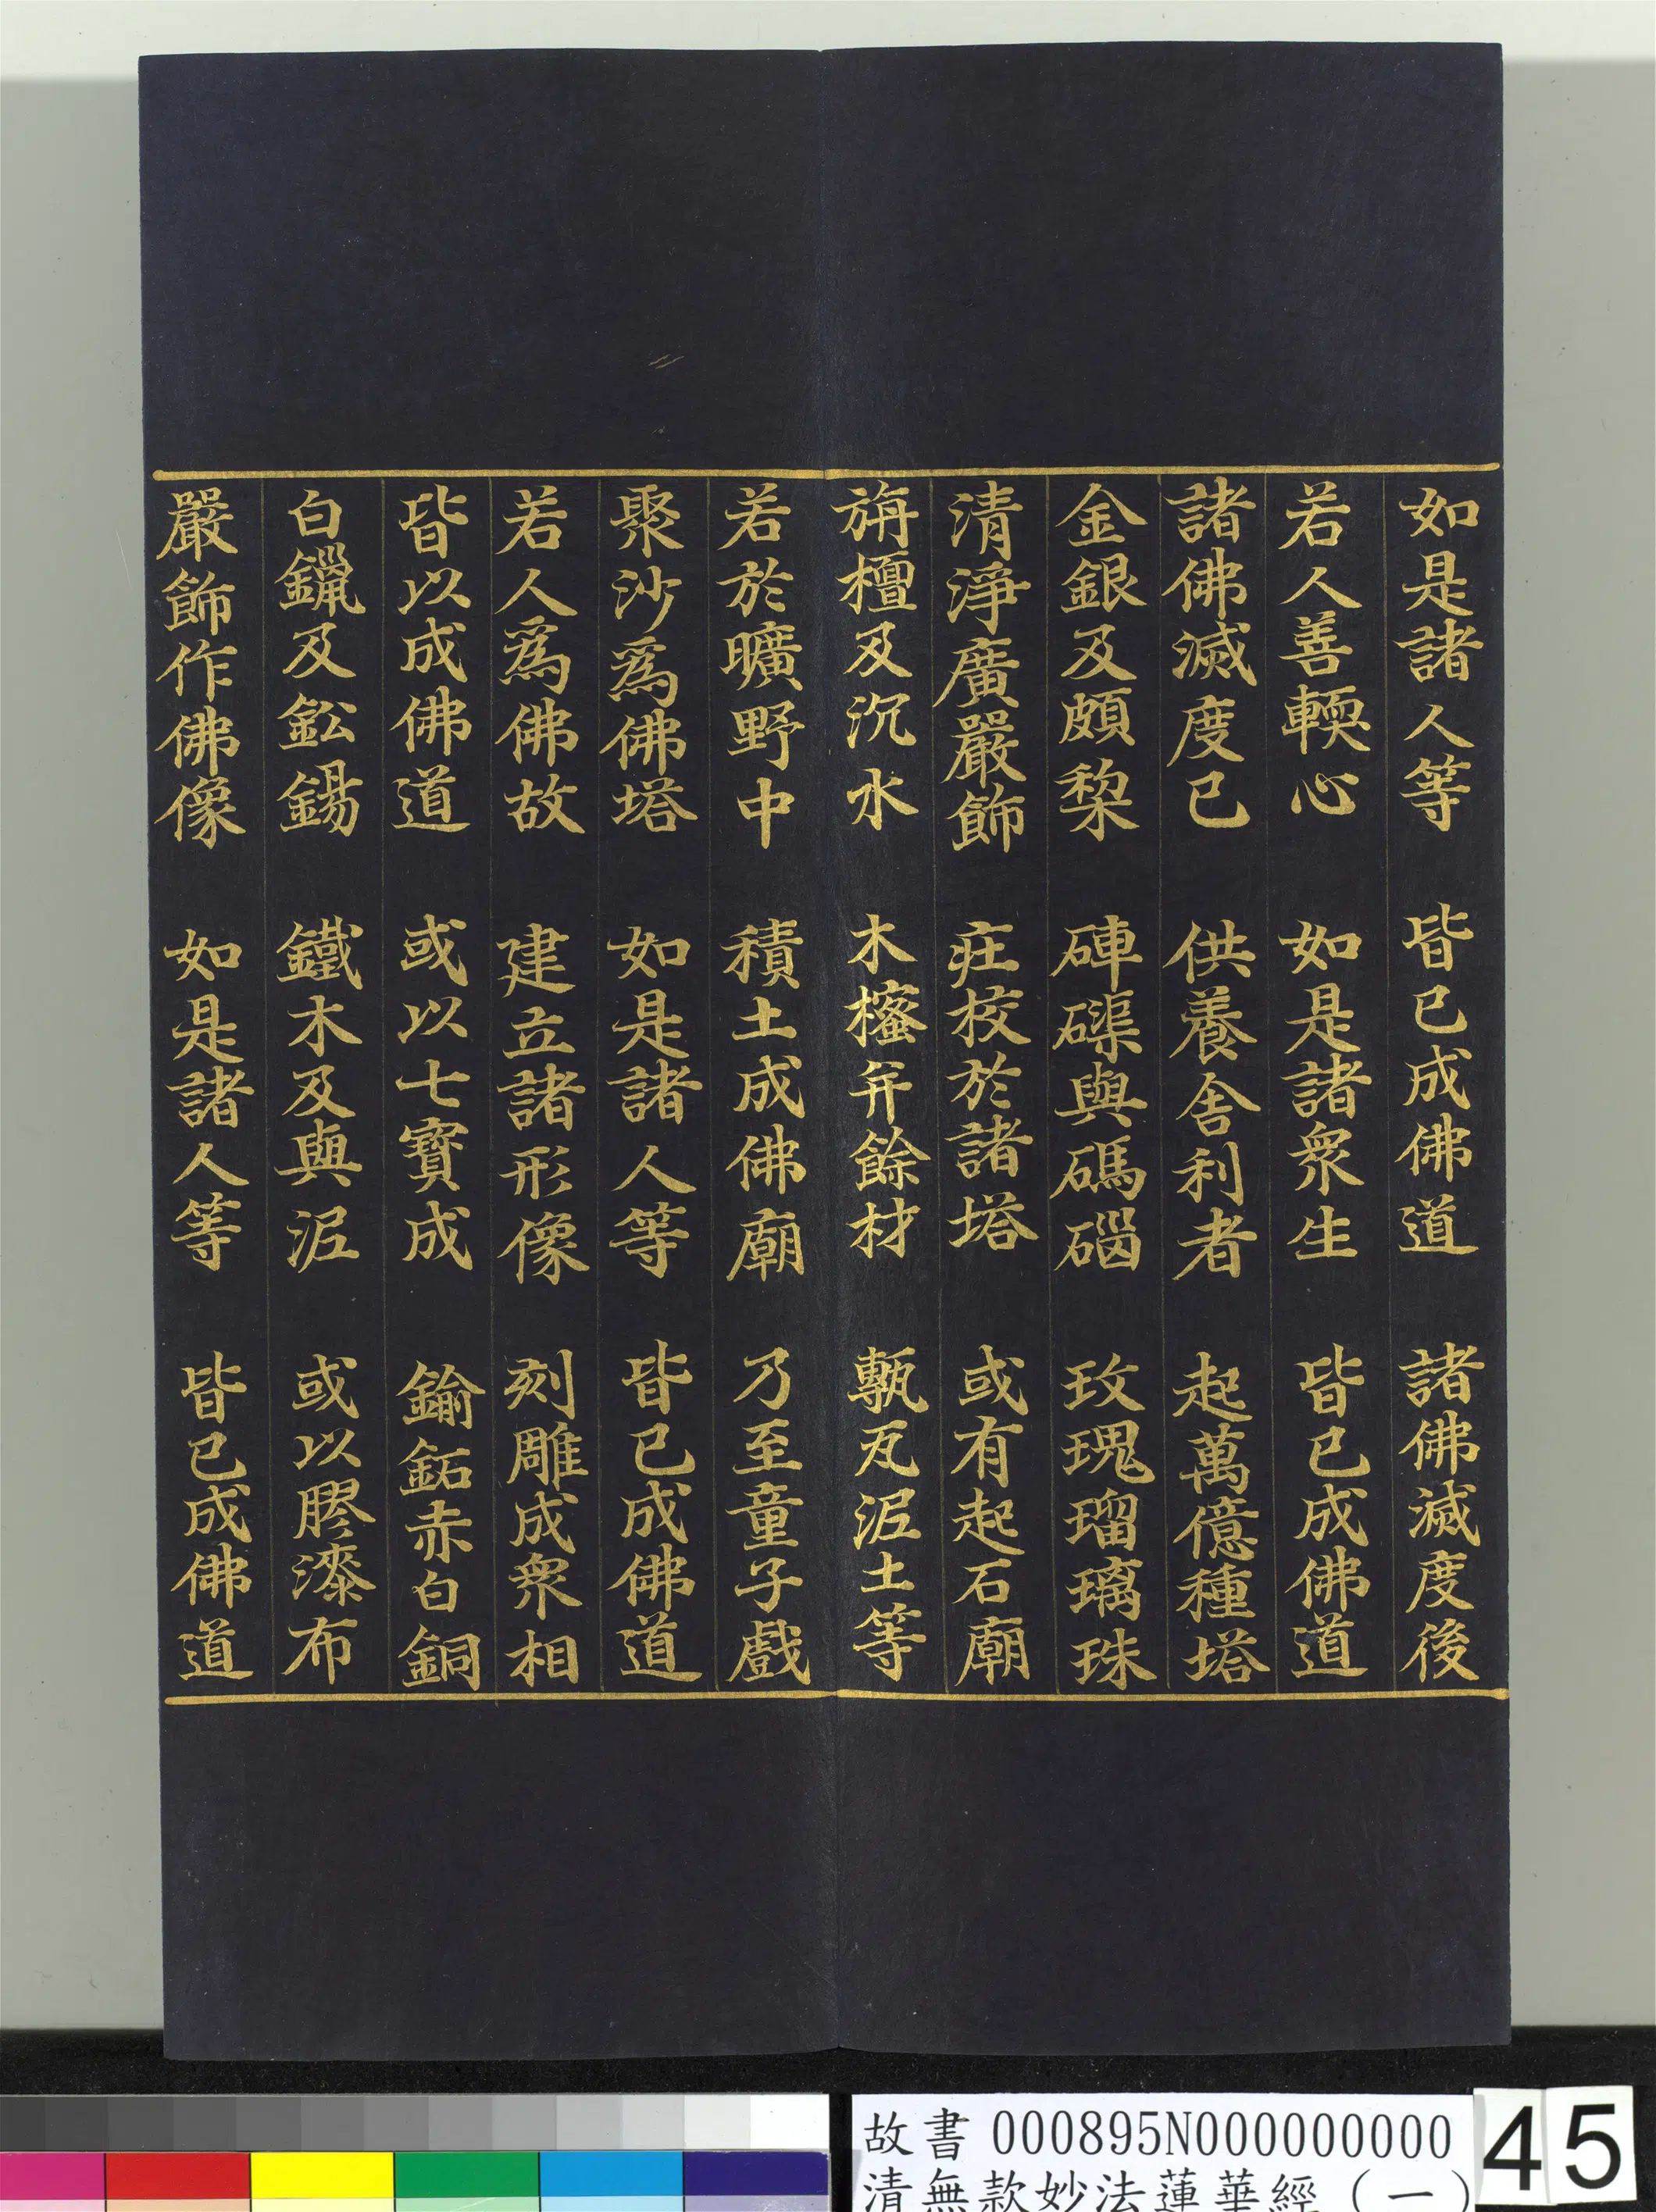 如是諸人等 皆已成佛道 諸佛滅度後
若人善輭心 如是諸眾生 皆已成佛道
諸佛滅度已 供養舍利者 起萬億種塔
金銀及頗棃 硨磲與碼碯 玫瑰瑠璃珠
清淨廣嚴飾 莊校於諸塔 或有起石廟
旃檀及沉水 木櫁并餘材 甎瓦泥土等
若於曠野中 積土成佛廟 乃至童子戲
聚沙為佛塔 如是諸人等 皆已成佛道
若人為佛故 建立諸形像 刻雕成眾相
皆以成佛道 或以七寶成 鍮鉐赤白銅
白鑞及鉛錫 鐵木及與泥 或以膠漆布
嚴飾作佛像 如是諸人等 皆已成佛道
故書 000895N000000000 45
清無款妙法蓮華經(一)